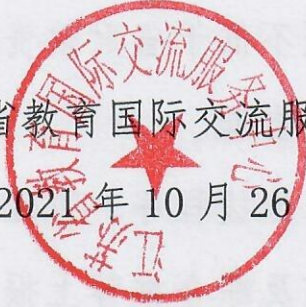 江苏省教育国际交流服务中心
省教育国际交流服
2021 年 10 月 26